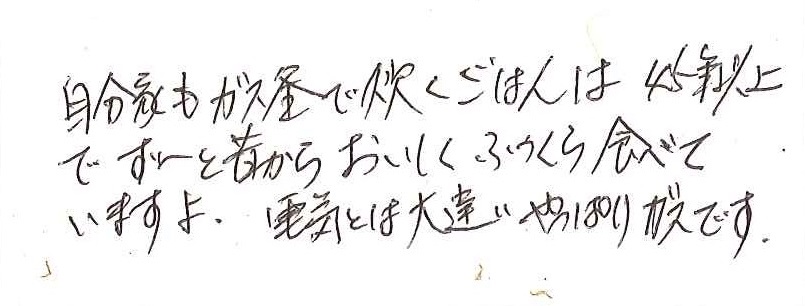 自分家もガス釜で炊くごはんは 45年以上
で ずーと昔から おいしく ふっくら 食べて
いますよ. 電気とは大違い やっぱり ガスです.